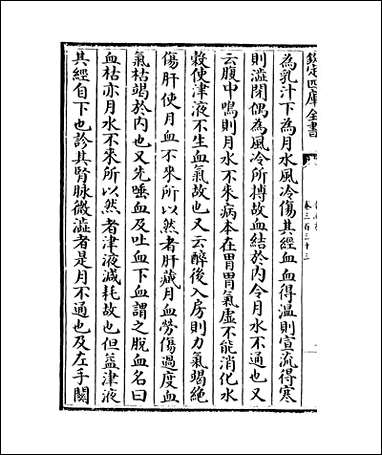 欽定四庫全書
卷三百三十三
為乳汁下為月水風冷傷其經血血得温則宣流得寒
則澁閉偶為風冷所搏故血結於内令月水不通也又
云腹中鳴則月水不来病本在胃胃氣虛不能消化水
榖使津液不生血氣故也又云醉後入房則力氣竭絶
傷肝使月血不來所以然者肝藏月血勞傷過度血
氣枯竭於内也又先唾血及吐血下血謂之脱血名曰
血枯亦月水不來所以然者津液減耗故也但益津液
其經自下也診其腎脉微澁者是月不通也及左手關